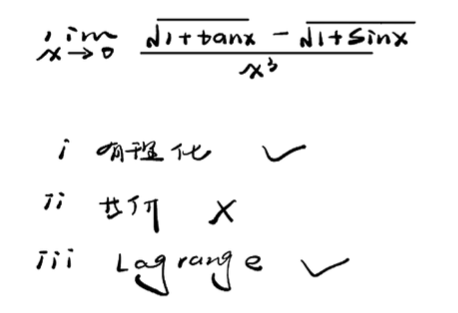 lim x→0 (√(1+tanx) - √(1+sinx)) / x³
i 有理化 ✓
ii 共轭 ×
iii Lagrange ✓